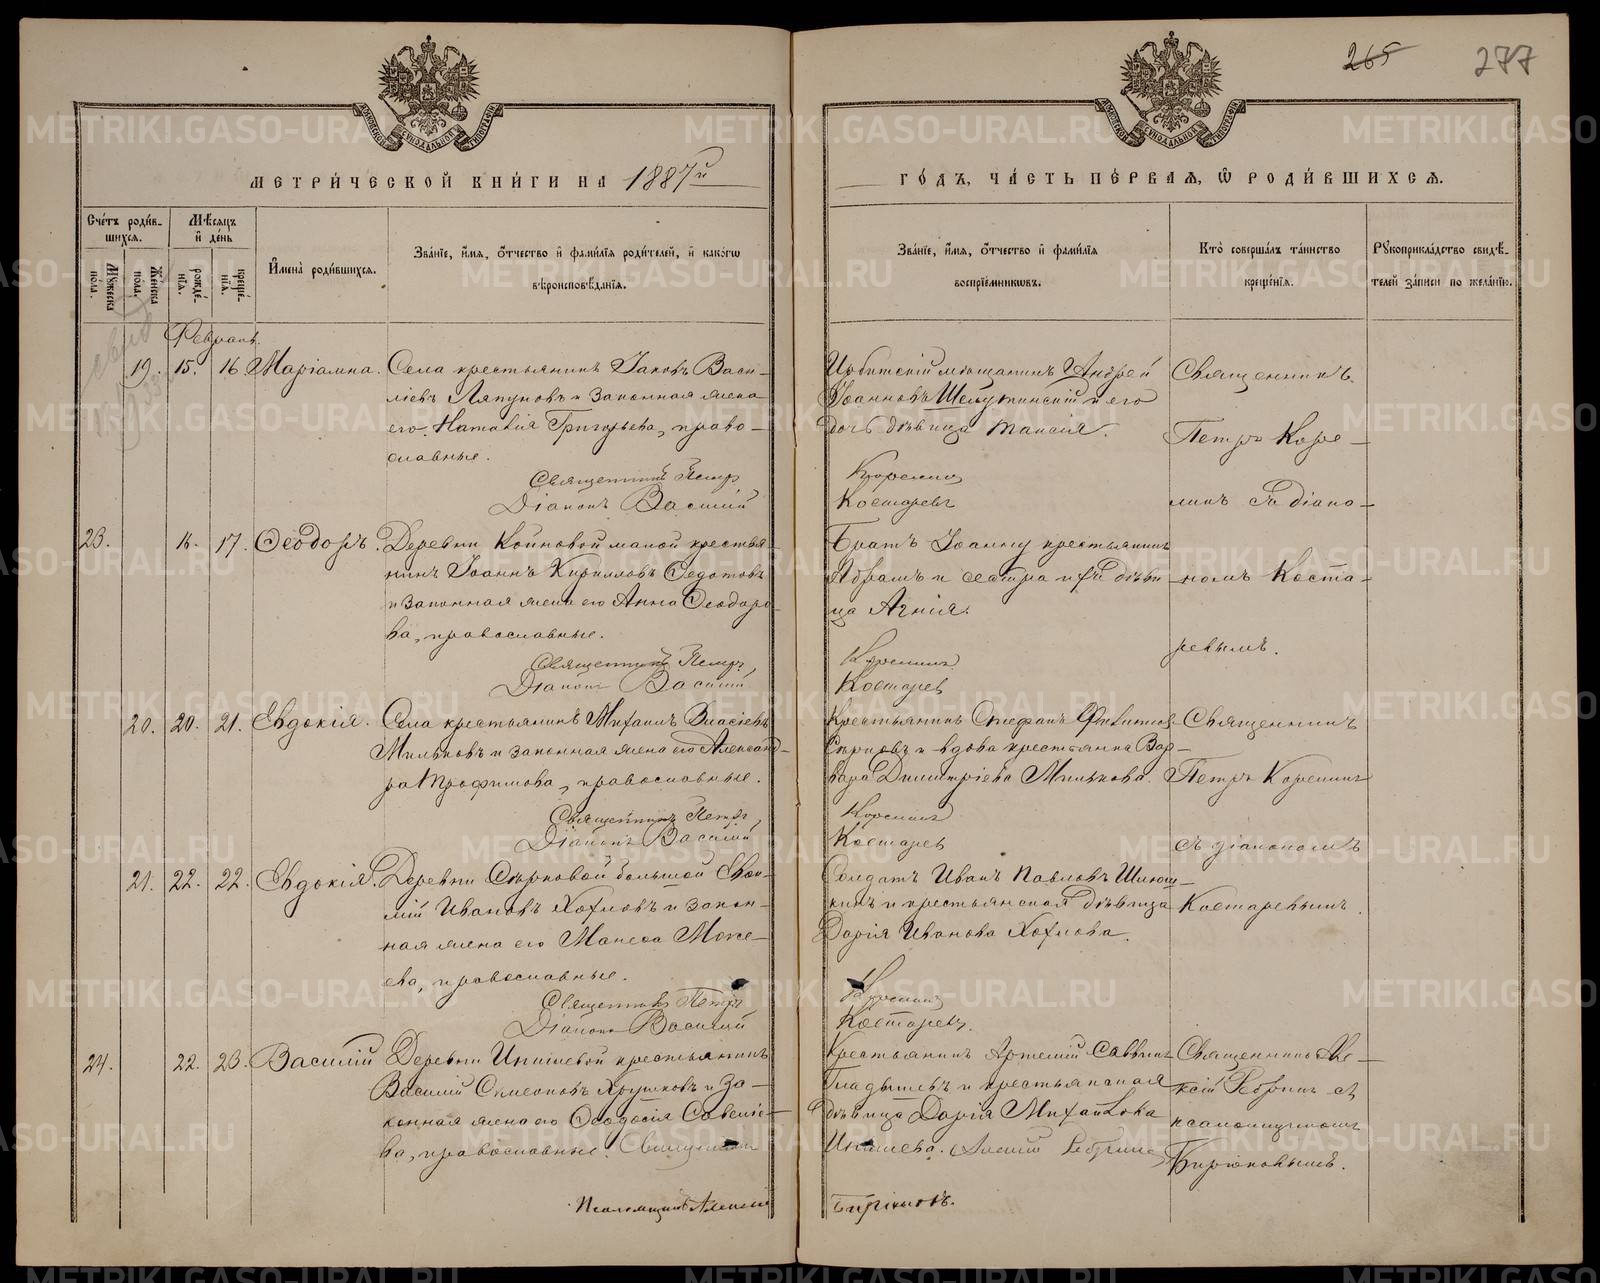 265 277
МЕТРИ́ЧЕСКОЙ КНИ́ГИ НА 1887й
ГО́ДЪ, ЧА́СТЬ ПЕ́РВАЯ, Ѡ РОДИ́ВШИХСЯ.
Сче́тъ роди́в-
шихся.
Му́жеска по́ла.
Же́нска по́ла.
Мѣ́сяцъ
и де́нь
рожде́-
нїя.
креще́-
нїя.
И҆мена̀ роди́вшихся.
Зва́нїе, и҆́мя, о҆́тчество и҆ фами́лїя роди́телей, и҆ како́гѡ
вѣроисповѣ́данїя.
Зва́нїе, и҆́мя, о҆́тчество и҆ фами́лїя
воспрїе́мникѡвъ.
Кто̀ соверша́лъ та́инство
креще́нїя.
Рꙋкоприкла́дство свидѣ́-
телей за́писи по жела́нїю.
Февраль.
19. 15. 16. Маріамна. Села крестьянинъ Іаковъ Васи-
ліевъ Ляпуновъ и законная жена
его Наталія Григорьева, право-
славные.
Священникъ Петръ
Діаконъ Василій
Ирбитскій мѣщанинъ Андрей
Іоанновъ и его
дочь дѣвица Таисія.
Корелинъ
Костаревъ
Священникъ
Петръ Коре-
линъ съ діако-
23. 16. 17. Ѳеодоръ. Деревни Койновой малой крестья-
нинъ Іоаннъ Кирилловъ Ѳедотовъ
и законная жена его Анна Ѳеодоро-
ва, православные.
Священникъ Петръ,
Діаконъ Василій
Братъ Іоанну крестьянинъ
Абрамъ и сестра ихъ дѣви-
ца Агнія.
Корелинъ
Костарев
номъ Коста-
ревымъ.
20. 20. 21. Евдокія. Села крестьянинъ Михаилъ Власіевъ
Мильковъ и законная жена его Александ-
ра Трофимова, православные.
Священникъ Петръ,
Діаконъ Василій
Крестьянинъ Стефанъ
Сѣрковъ и вдова крестьянка Вар-
вара Димитріева Милькова.
Корелинъ
Костарев
Священникъ
Петръ Корелинъ
съ діакономъ
21. 22. 22. Евдокія. Деревни Сѣрковой большой
Ивановъ Хохловъ и закон-
ная жена его Манееа Мокее-
ева, православные.
Священникъ Петръ
Діаконъ Василій
Солдатъ Иванъ Павловъ
и крестьянская дѣвица
Дарія Иванова Хохлова.
Корелинъ
Костаревъ.
Костаревымъ.
24. 22. 23. Василій Деревни Инишевой крестьянинъ
Василій Симеоновъ Хрушковъ и за-
конная жена его Ѳеодосія Савеліе-
ва, православные. Священникъ
Псаломщикъ Алексій
Крестьянинъ Артемій Саввинъ
Гладышевъ и крестьянская
дѣвица Дарія Михайлова
Инишева. Алексій Ребринъ
Бирюковъ.
Священникъ Але-
ксій Ребринъ съ
псаломщикомъ
Бирюковымъ.
METRIKI.GASO-URAL.RU